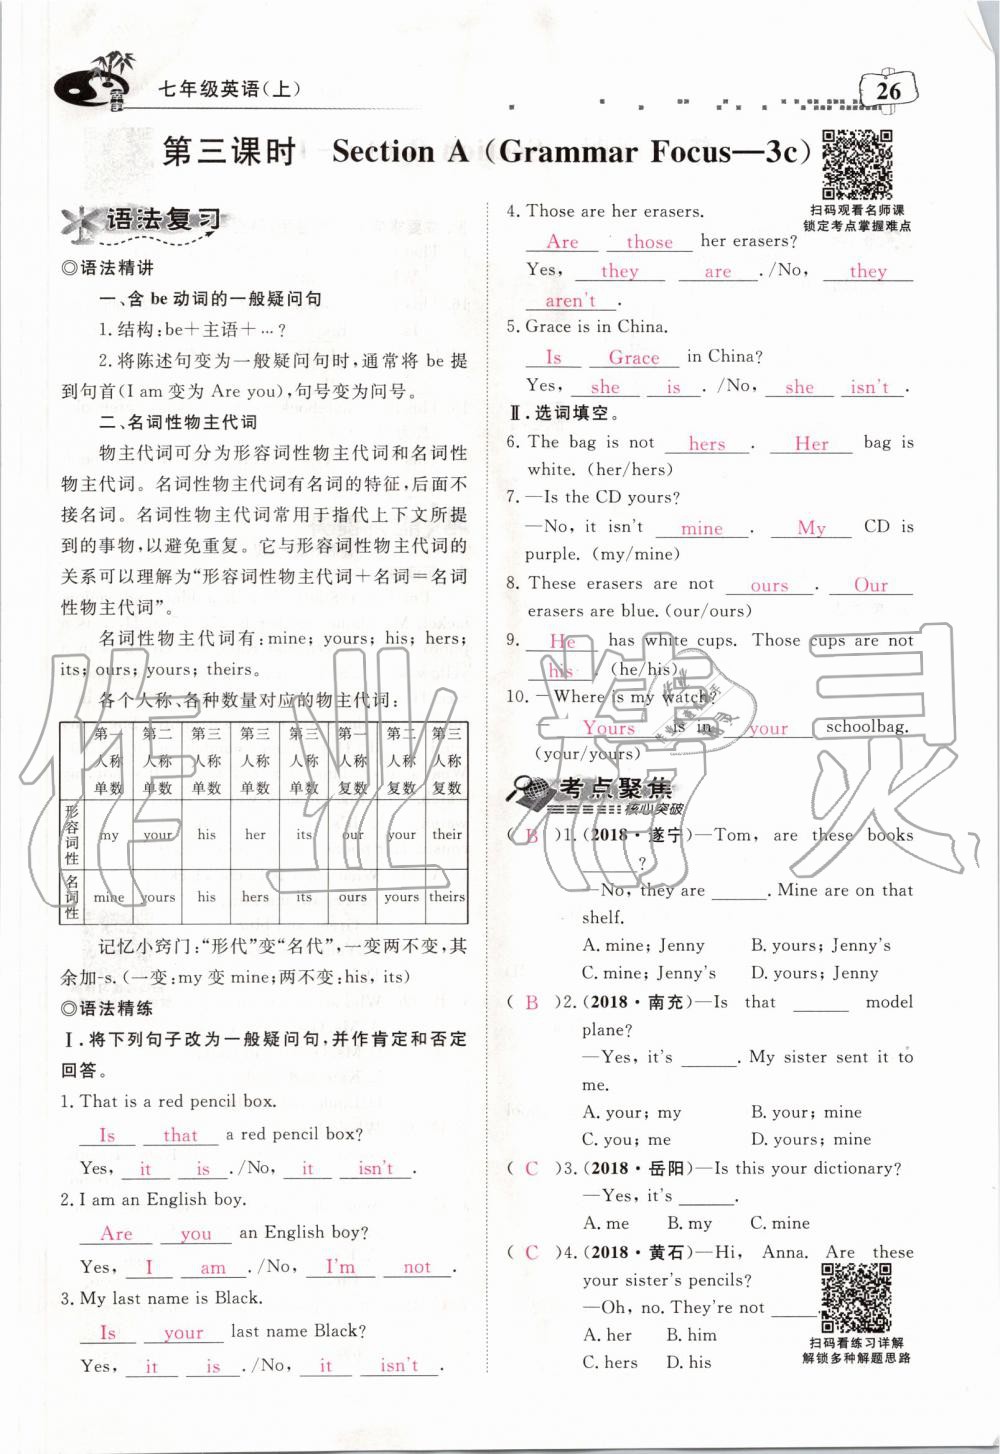 七年级英语(上)
26
第三课时 Section A (Grammar Focus—3c)
扫码观看名师课
锁定考点掌握难点
语法复习
◎语法精讲
一、含 be 动词的一般疑问句
1.结构:be+主语+…?
2.将陈述句变为一般疑问句时,通常将 be 提
到句首(I am 变为 Are you),句号变为问号。
二、名词性物主代词
物主代词可分为形容词性物主代词和名词性
物主代词。名词性物主代词有名词的特征,后面不
接名词。名词性物主代词常用于指代上下文所提
到的事物,以避免重复。它与形容词性物主代词的
关系可以理解为“形容词性物主代词+名词=名词
性物主代词”。
名词性物主代词有:mine; yours; his; hers;
its; ours; yours; theirs。
各个人称、各种数量对应的物主代词:
第一人称单数 第二人称单数 第三人称单数 第三人称单数 第三人称单数 第一人称复数 第二人称复数 第三人称复数
形容词性 my your his her its our your their
名词性 mine yours his hers its ours yours theirs
记忆小窍门:“形代”变“名代”,一变两不变,其
余加-s.(一变:my 变 mine;两不变:his, its)
◎语法精练
Ⅰ.将下列句子改为一般疑问句,并作肯定和否定
回答。
1. That is a red pencil box.
Is that a red pencil box?
Yes, it is. /No, it isn't.
2. I am an English boy.
Are you an English boy?
Yes, I am. /No, I'm not.
3. My last name is Black.
Is your last name Black?
Yes, it is. /No, it isn't.
4. Those are her erasers.
Are those her erasers?
Yes, they are. /No, they
aren't.
5. Grace is in China.
Is Grace in China?
Yes, she is. /No, she isn't.
Ⅱ.选词填空。
6. The bag is not hers. Her bag is
white. (her/hers)
7. —Is the CD yours?
—No, it isn't mine. My CD is
purple. (my/mine)
8. These erasers are not ours. Our
erasers are blue. (our/ours)
9. He has white cups. Those cups are not
his. (he/his)
10. —Where is my watch?
—Yours is in your schoolbag.
(your/yours)
考点聚焦
核心突破
( B )1. (2018·遂宁)—Tom, are these books
______?
—No, they are ______. Mine are on that
shelf.
A. mine; Jenny B. yours; Jenny's
C. mine; Jenny's D. yours; Jenny
( B )2. (2018·南充)—Is that ______ model
plane?
—Yes, it's ______. My sister sent it to
me.
A. your; my B. your; mine
C. you; me D. yours; mine
( C )3. (2018·岳阳)—Is this your dictionary?
—Yes, it's ______.
A. me B. my C. mine
( C )4. (2018·黄石)—Hi, Anna. Are these
your sister's pencils?
—Oh, no. They're not ______.
A. her B. him
C. hers D. his
扫码看练习详解
解锁多种解题思路
作业精灵